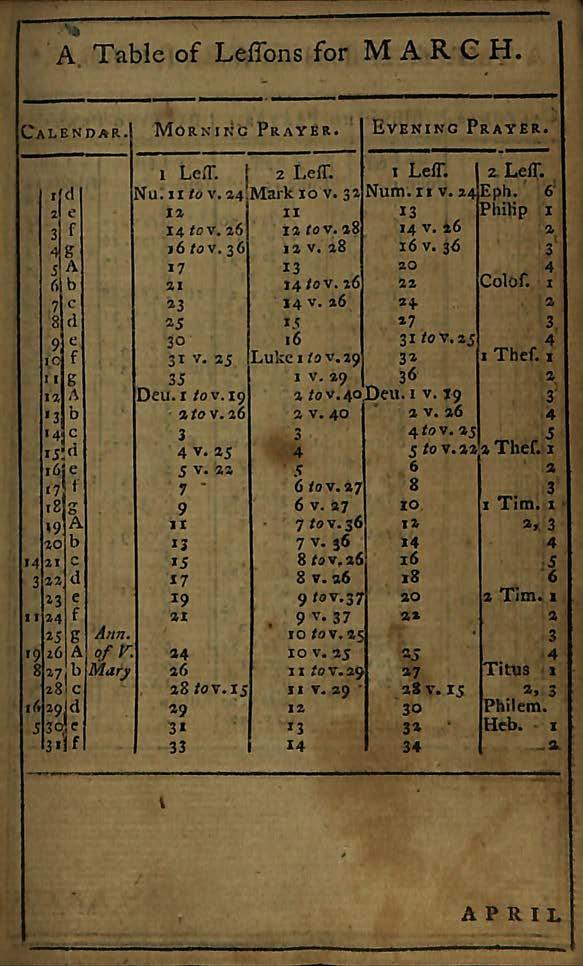 A Table of Leſſons for MARCH.
CALENDAR. MORNING PRAYER. EVENING PRAYER.
1 Leſſ. 2 Leſſ. 1 Leſſ. 2 Leſſ.
1 d Nu. 11 to v. 24 Mark 10 v. 32 Num. 11 v. 24 Eph. 6
2 e 12 11 13 Philip 1
3 f 14 to v. 26 12 to v. 28 14 v. 26 2
4 g 16 to v. 36 12 v. 28 16 v. 36 3
5 A 17 13 20 4
6 b 21 14 to v. 26 22 Coloſ. 1
7 c 23 14 v. 26 24 2
8 d 25 15 27 3
9 e 30 16 31 to v. 25 4
10 f 31 v. 25 Luke 1 to v. 29 32 1 Theſ. 1
11 g 35 1 v. 29 36 2
12 A Deu. 1 to v. 19 2 to v. 40 Deu. 1 v. 19 3
13 b 2 to v. 26 2 v. 40 2 v. 26 4
14 c 3 3 4 to v. 25 5
15 d 4 v. 25 4 5 to v. 22 2 Theſ. 1
16 e 5 v. 22 5 6 2
17 f 7 6 to v. 27 8 3
18 g 9 6 v. 27 10 1 Tim. 1
19 A 11 7 to v. 36 12 2, 3
20 b 13 7 v. 36 14 4
14 21 c 15 8 to v. 26 16 5
3 22 d 17 8 v. 26 18 6
23 e 19 9 to v. 37 20 2 Tim. 1
11 24 f 21 9 v. 37 22 2
25 g Ann. 10 to v. 25 3
19 26 A of V. 24 10 v. 25 25 4
8 27 b Mary 26 11 to v. 29 27 Titus 1
28 c 28 to v. 15 11 v. 29 28 v. 15 2, 3
16 29 d 29 12 30 Philem.
5 30 e 31 13 32 Heb. 1
31 f 33 14 34 2
APRIL